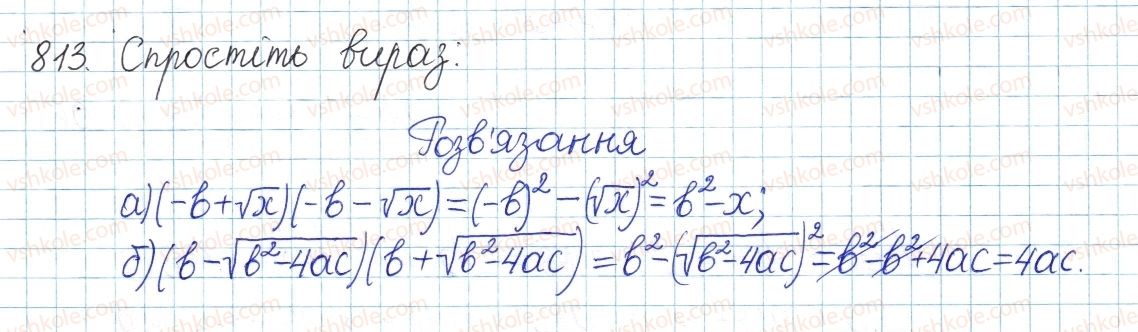 813. Спростіть вираз:
Розв'язання
а) (-в+√x)(-в-√x)=(-в)²-(√x)²=в²-x;
б) (в-√(в²-4ac))(в+√(в²-4ac))=в²-(√(в²-4ac))²=в²-в²+4ac=4ac.